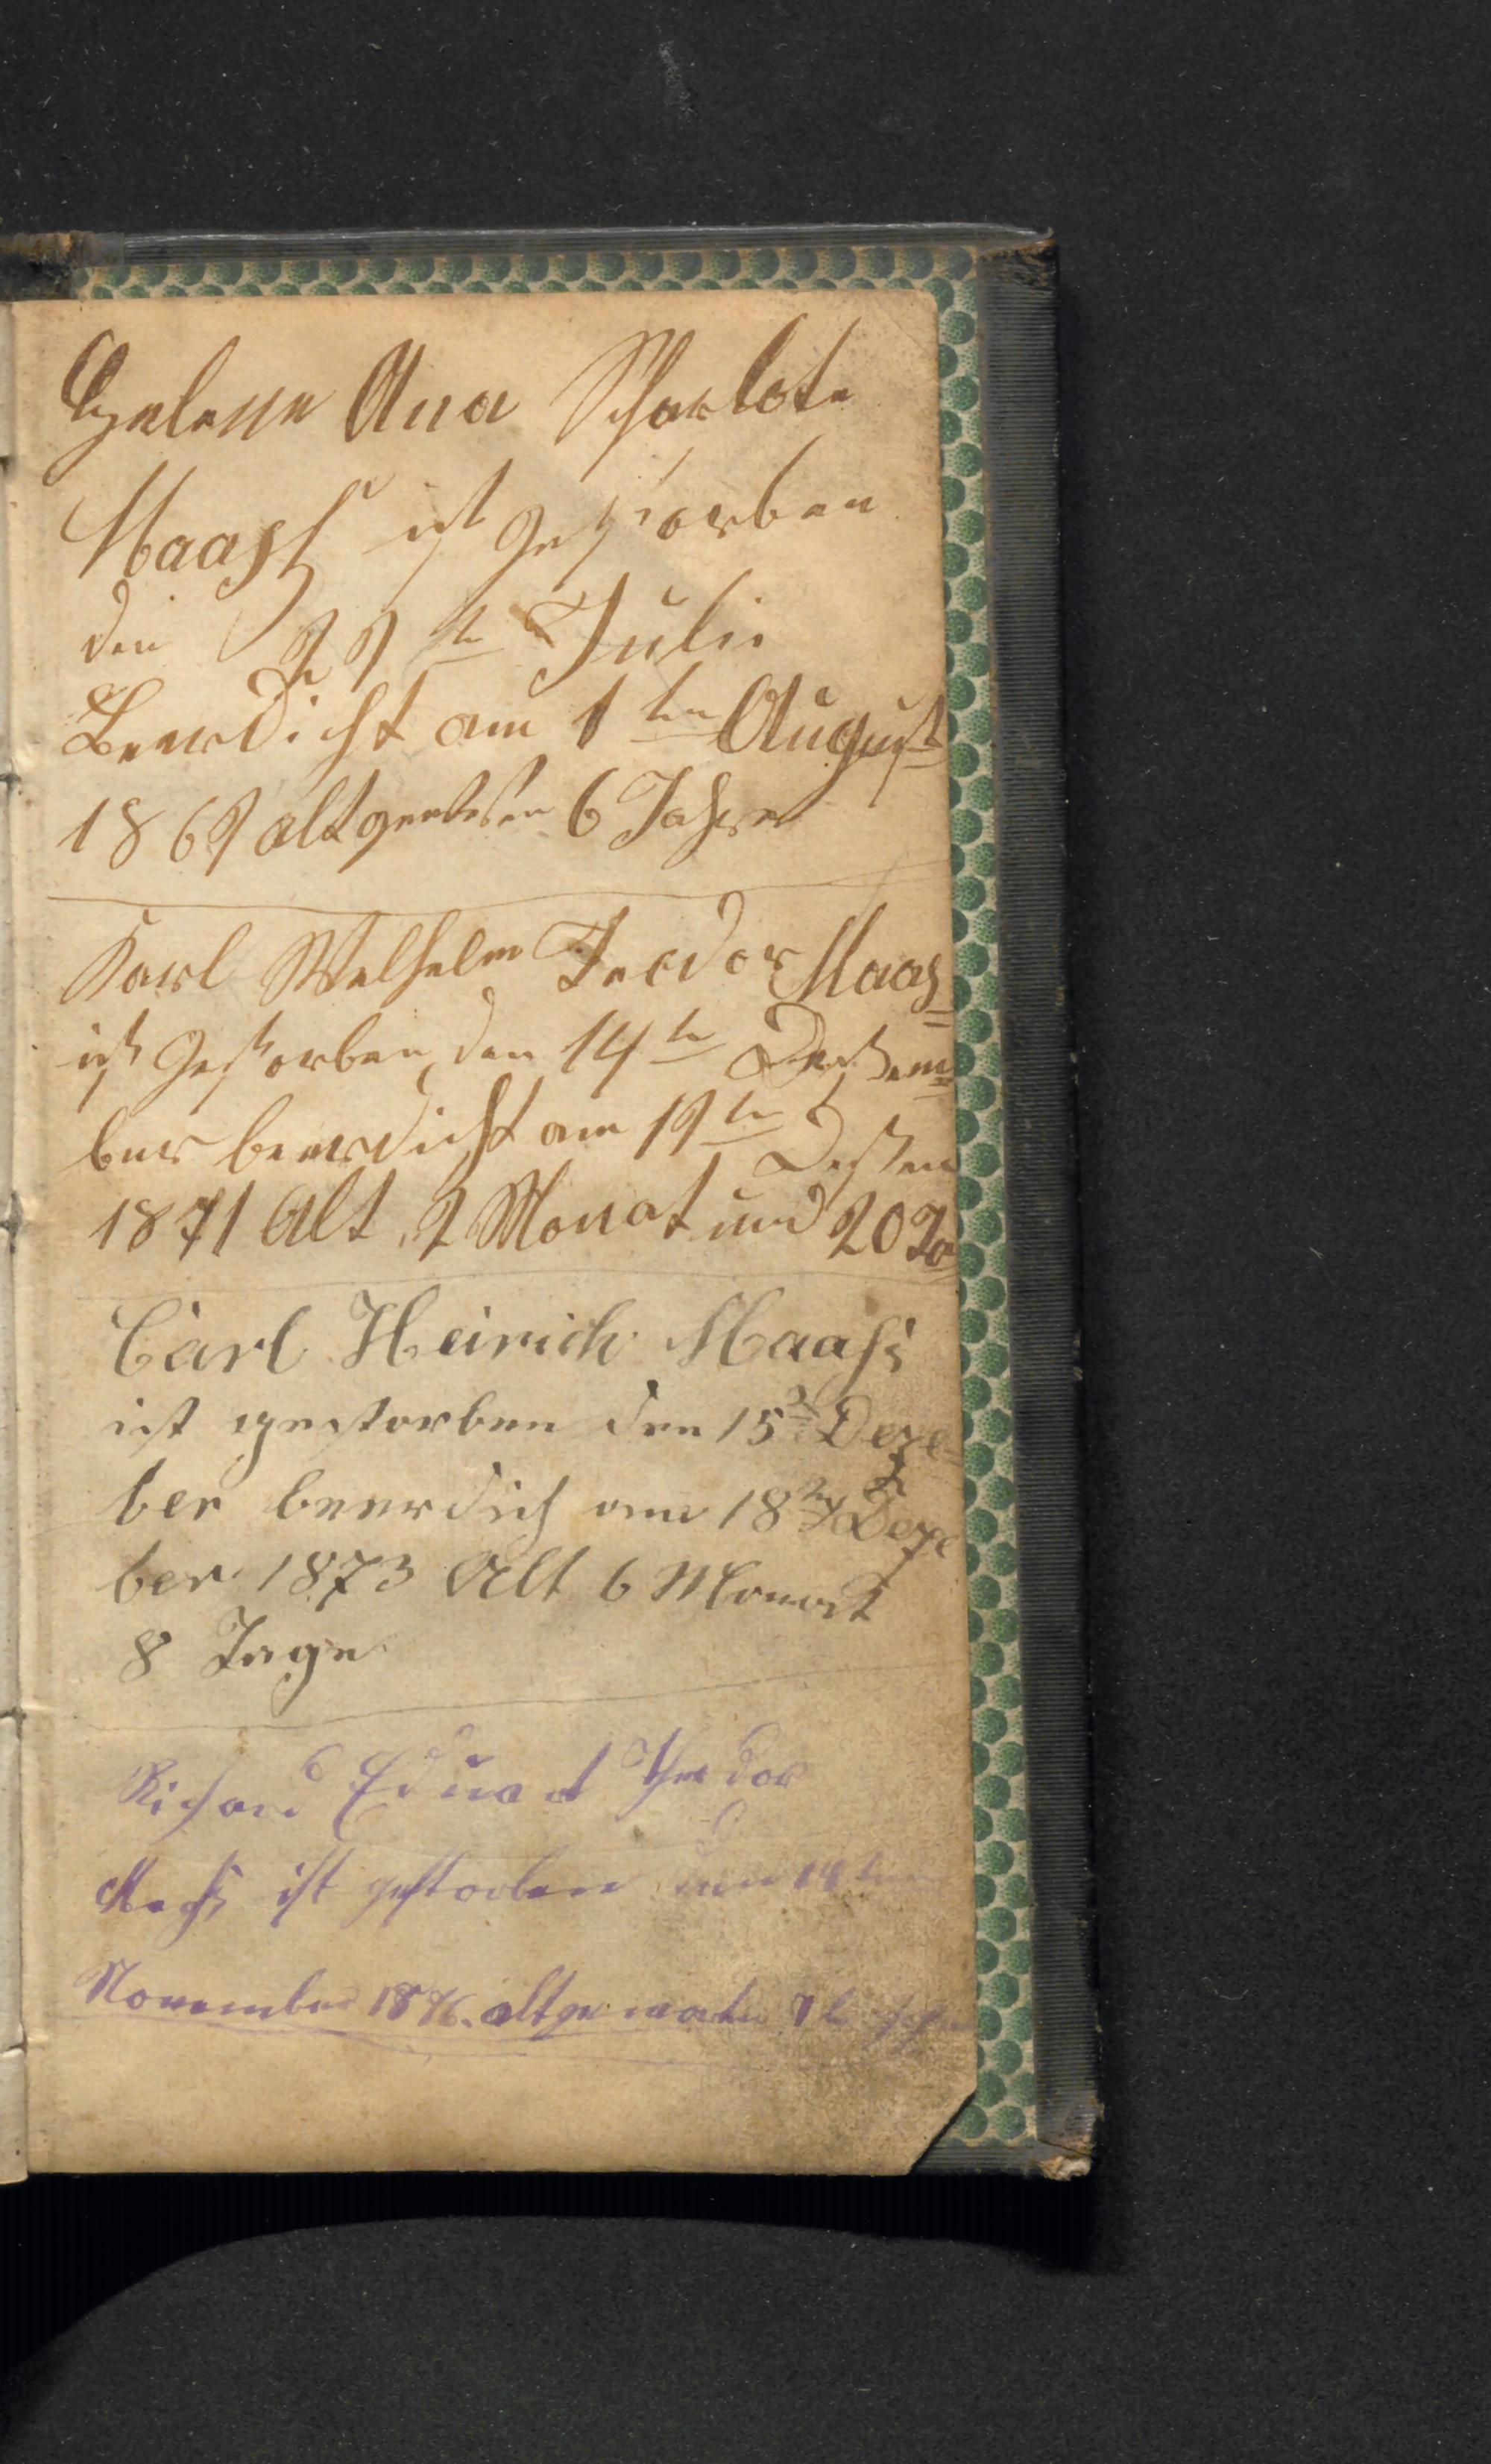 Helene Ana Scharlote
Maaß ist Gestorben
den 29ten Julii
Beerdicht am 1ten August
1869 alt gewesen 6 Jahre
Karl Welhelm Teodor Maaß
ist Gestorben den 14ten Deszem
ber beerdicht am 19ten Deszem
1871 Alt 2 Monat und 20 Ta
Carl Heirich Maaß
ist gestorben den 15ten Deze
ber beerdich am 18ten Deze
ber 1873 Alt 6 Monat
8 Tage
Richard Eduad Theodor
Maaß ist gestorben den 14ten
November 1876. alt